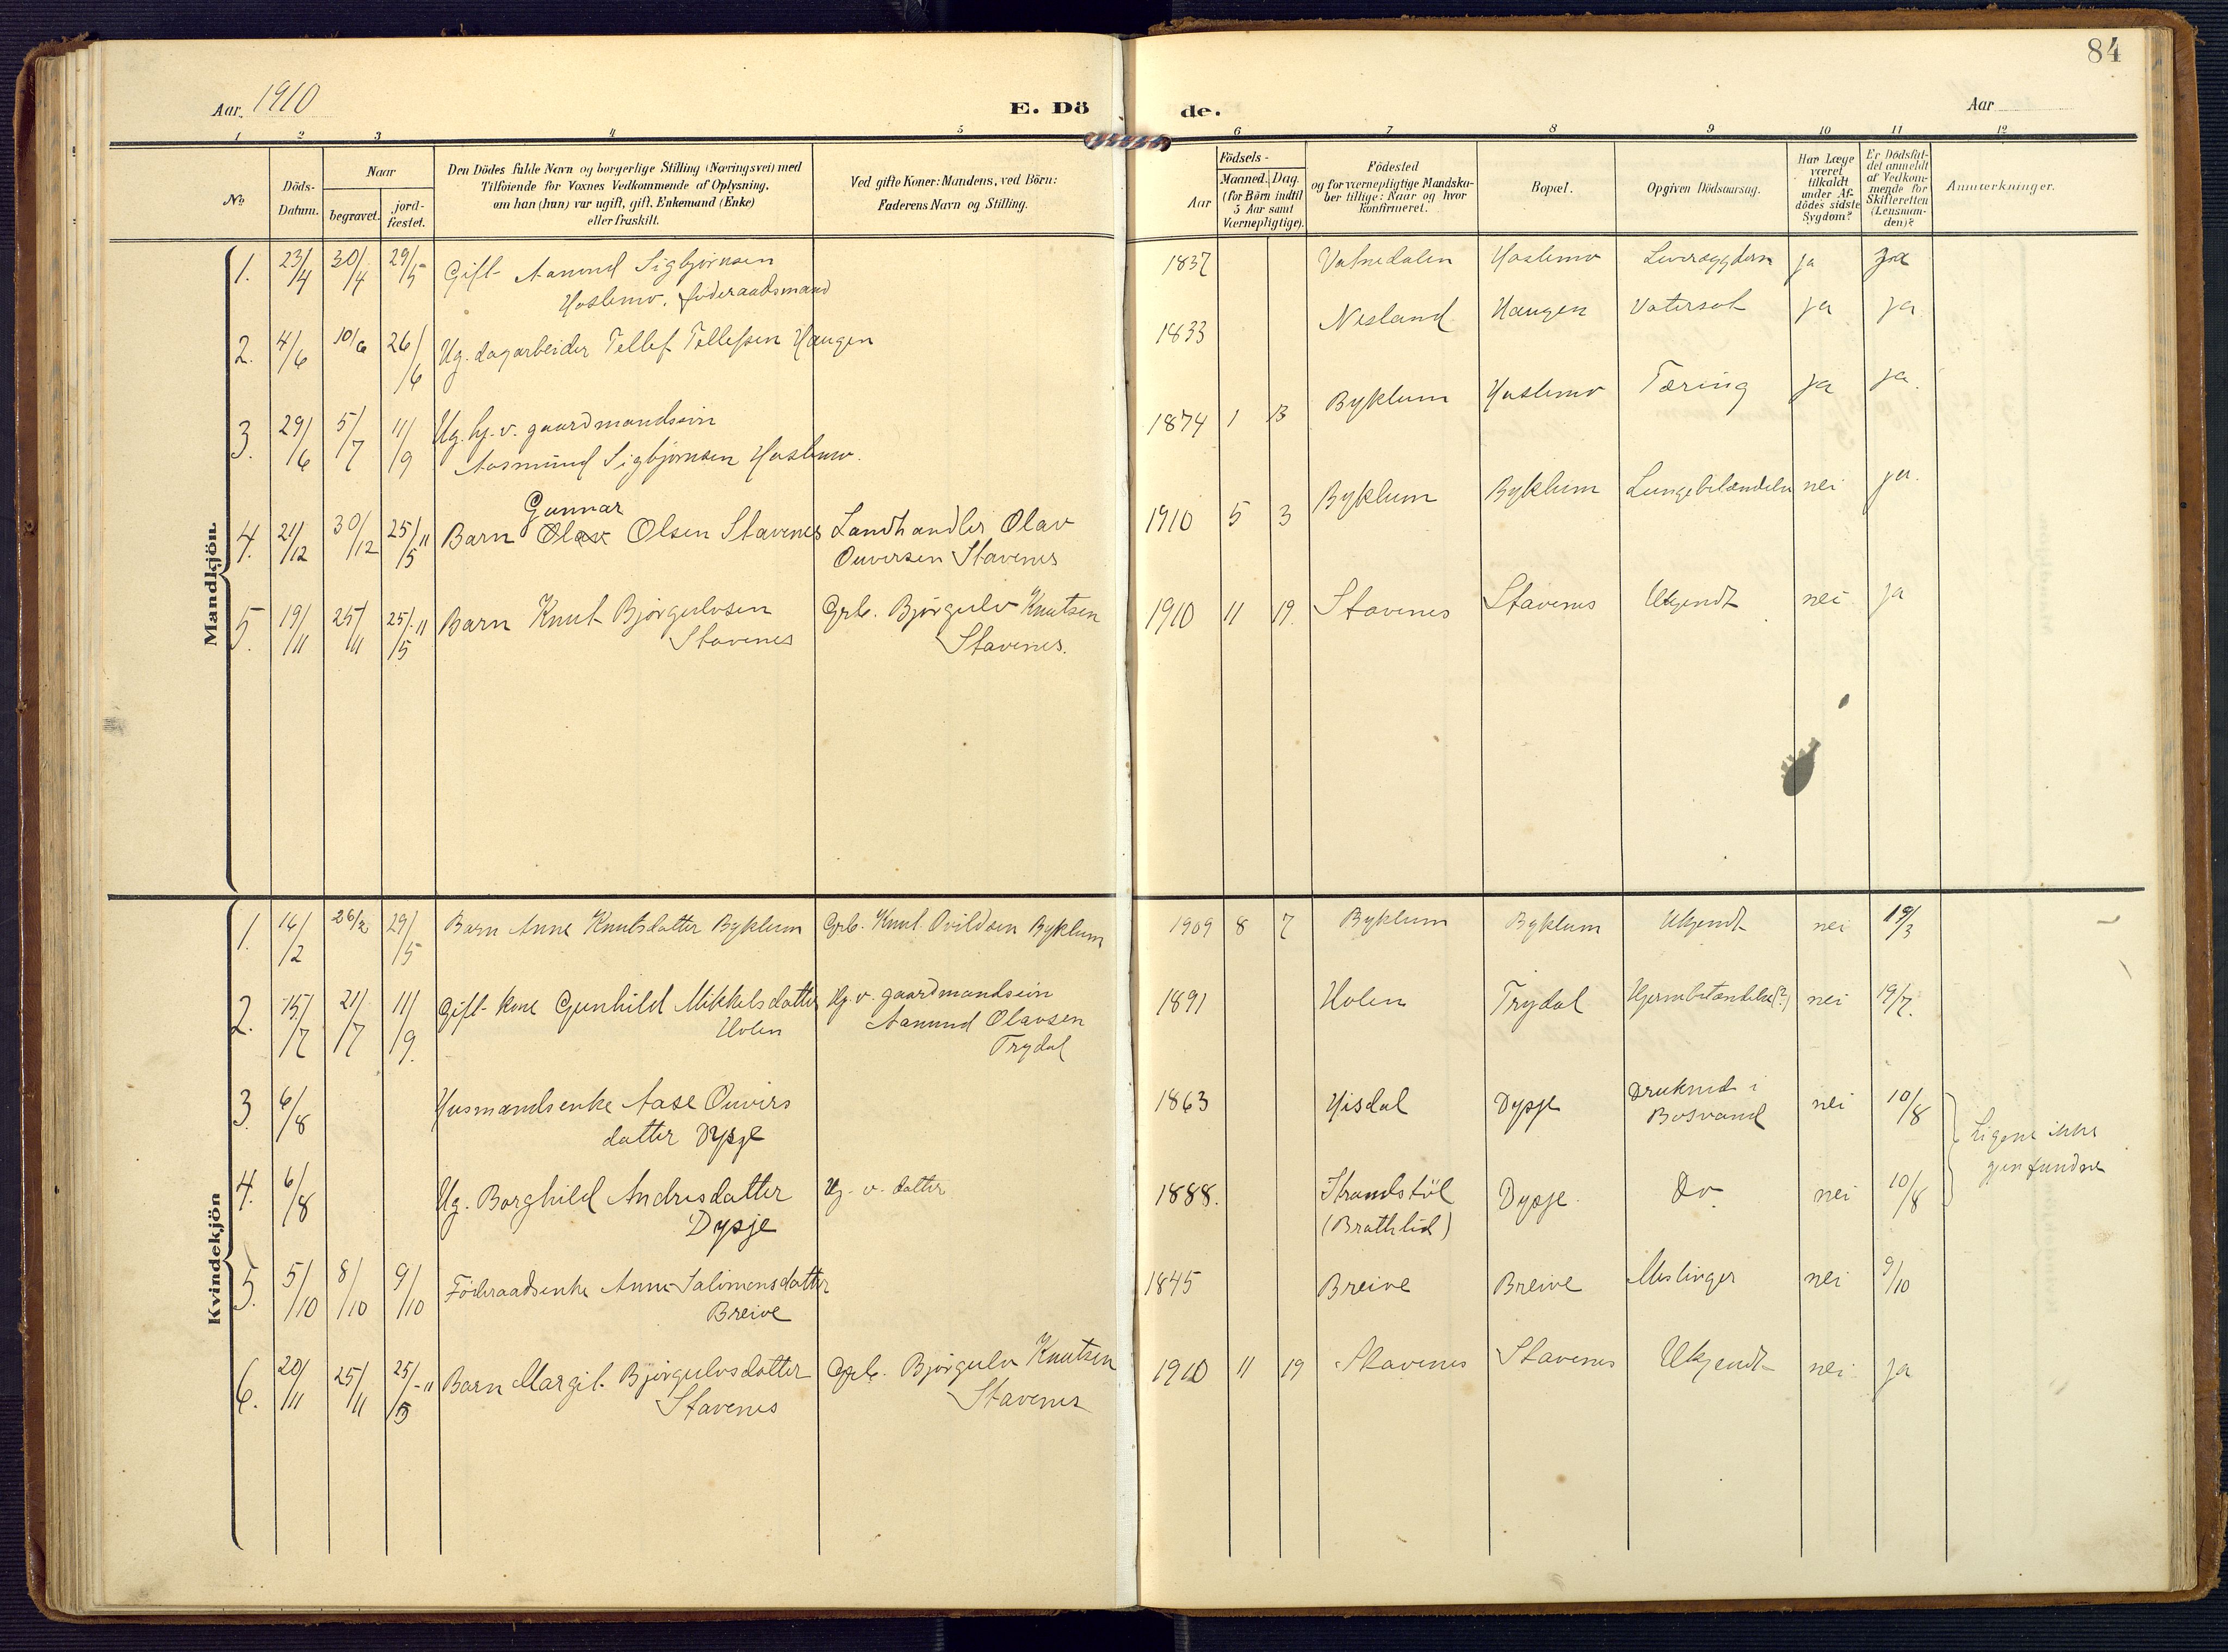 84
Aar. 1910
E. Dö
de.
Aar
1 2 3 4 5 6 7 8 9 10 11 12
No.
Döds-
Datum.
Naar
begravet.
jord-
fæstet.
Den Dödes fulde Navn og borgerlige Stilling (Næringsvei) med
Tilföiende for Voxnes Vedkommende af Oplysning,
om han (hun) var ugift, gift, Enkemand (Enke)
eller fraskilt.
Ved gifte Koner: Mandens, ved Börn:
Faderens Navn og Stilling.
Födsels-
Aar
Maaned. Dag.
(for Börn indtil
5 Aar samt
Værnepligtige).
Födested
og for værnepligtige Mandska-
ber tillige: Naar og hvor
konfirmeret.
Bopæl.
Opgiven Dödsaarsag.
Har Læge
været
tilkaldt
under Af-
dödes sidste
Sygdom?
Er Dödsfal-
det anmeldt
af Vedkom-
mende for
Skifteretten
(Lensman-
den)?
Anmærkninger.
Mandkjön
1. 23/4 30/4 29/5 Gift Aanund Sigbjørnsen 1837 Vatnedalen Hoslemo ja ja
Hoslemo, føderaadsmand
2. 4/6 10/6 26/6 Ug. dagarbeider Tellef Tellefsen Haugen 1833 Nesland Haugen Vatersot ja ja
3. 29/6 5/7 11/9 Ug. hj. v. gaardmandssøn 1874 1 13 Byklum Hoslemo Tæring ja ja.
Aasmund Sigbjørnsen Hoslemo.
Gunnar
4. 21/12 30/12 25/5 11 Barn Olav Olsen Stavenes Landhandler Olav 1910 5 3 Byklum Byklum Lungebetændelse nei ja.
Ouversen Stavenes
5. 19/11 25/11 25/5 11 Barn Knut Bjørgulvsen Grb. Bjørgulv Knutsen 1910 11 19. Stavenes Stavenes Ukjendt nei ja
Stavenes Stavenes.
Kvindekjön
1. 16/2 26/2 29/5 Barn Anne Knutsdatter Byklum Grb. Knut Byklum 1909 8 7 Byklum Byklum Ukjendt nei 19/3
2. 15/7 21/7 11/9. Gift kone Gunhild Mikkelsdatter Hj. v. gaardmandssøn 1891 Holen Trydal Hjernebetændelse(?) nei 19/7.
Holen Aanund Olavsen
Trydal
3. 6/8 Husmandsenke Aase Ouvers 1863 Hisdal Dysje Druknet i nei 10/8
datter Dysje Bosvand
Ligene ikke
gjenfundne
4. 6/8 Ug. Borghild Andresdatter Hj. v. datter 1888. Strandstöl Dysje. do nei 10/8
Dysje (Bratlelid)
5. 5/10 8/10 9/10 Föderaadsenke Anne Salimonsdatter 1845 Breive Breive Meslinger nei 9/10
Breive
6. 20/11 25/11 25/5 - 11 Barn Margit Bjørgulvsdatter Grb. Bjørgulv Knutsen 1910 11 19 Stavenes Stavenes Ukjendt nei ja
Stavenes Stavenes